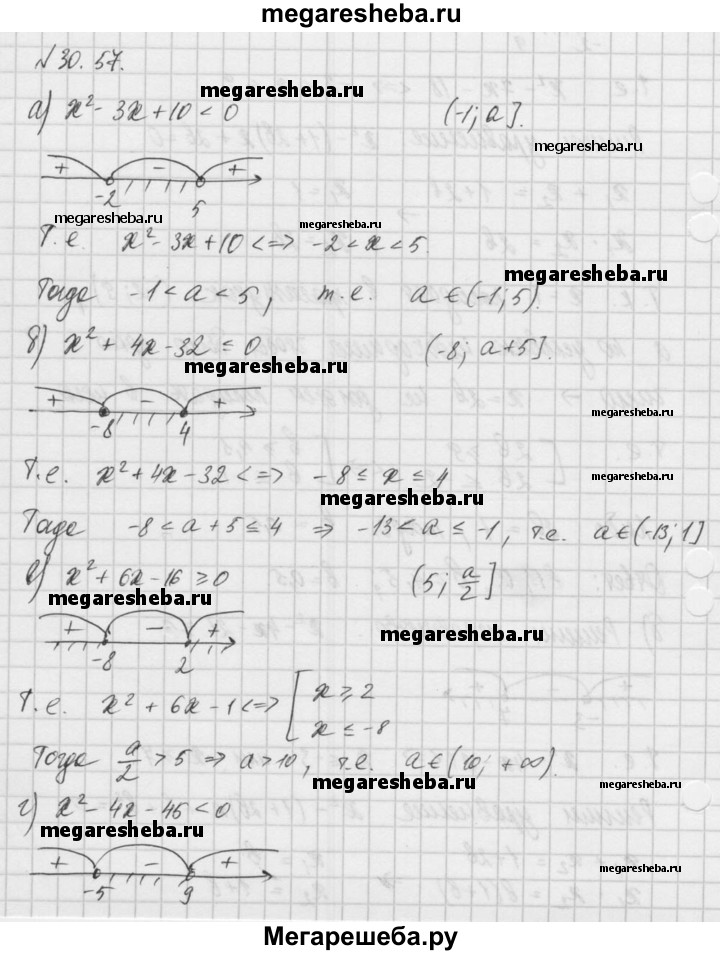 megaresheba.ru
№30.57.
megaresheba.ru
а) x² - 3x + 10 < 0 (-1; a].
megaresheba.ru
+ - +
-2 5
megaresheba.ru megaresheba.ru
Т.е. x² - 3x + 10 <=> -2 < x < 5.
megaresheba.ru
Тогда -1 < a < 5, т.е. a ∈ (-1; 5).
б) x² + 4x - 32 ≤ 0 (-8; a+5].
megaresheba.ru
+ - +
megaresheba.ru
-8 4
Т.е. x² + 4x - 32 <=> -8 ≤ x ≤ 4
megaresheba.ru
megaresheba.ru
Тогда -8 < a + 5 ≤ 4 => -13 < a ≤ -1, т.е. a ∈ (-13; 1]
megaresheba.ru
в) x² + 6x - 16 ≥ 0 (5; a/2]
megaresheba.ru
+ - +
megaresheba.ru
-8 2
Т.е. x² + 6x - 1 <=> [ x ≥ 2
x ≤ -8
Тогда a/2 > 5 => a > 10, т.е. a ∈ (10; +∞).
megaresheba.ru
megaresheba.ru
г) x² - 4x - 45 < 0
megaresheba.ru
+ - +
megaresheba.ru
-5 9
Мегарешеба.ру